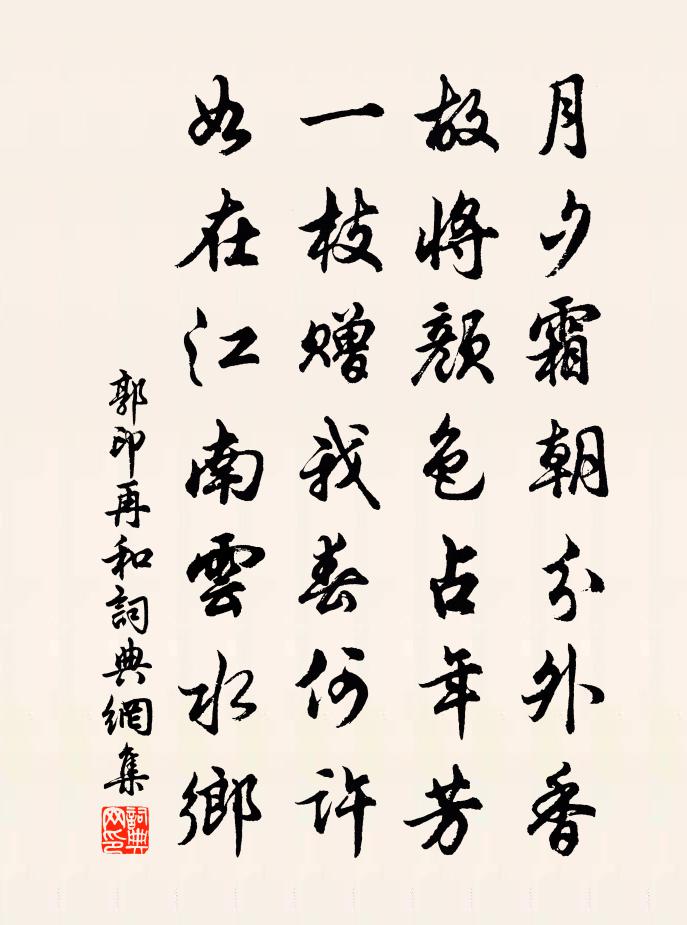 月夕霜朝分外香
故將顏色占年芳
一枝贈我春何許
如在江南雲水鄉
郭印再和詞典網集
詞典
网印